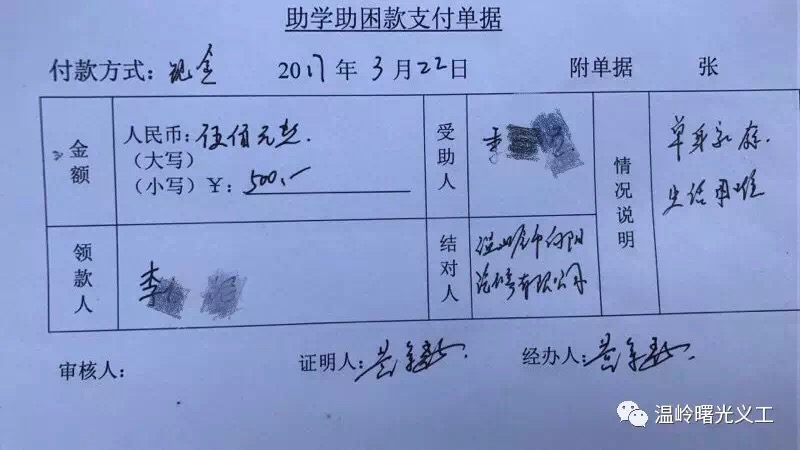 助学助困款支付单据
付款方式：现金 2017年3月22日 附单据 张
金额
人民币：伍佰元整.
（大写）
（小写）￥：500.-
受助人
李
情况说明
单身孤寡.
生活困难
领款人
李
结对人
温岭市向阳
汽修有限公司
审核人：
证明人：
经办人：
温岭曙光义工